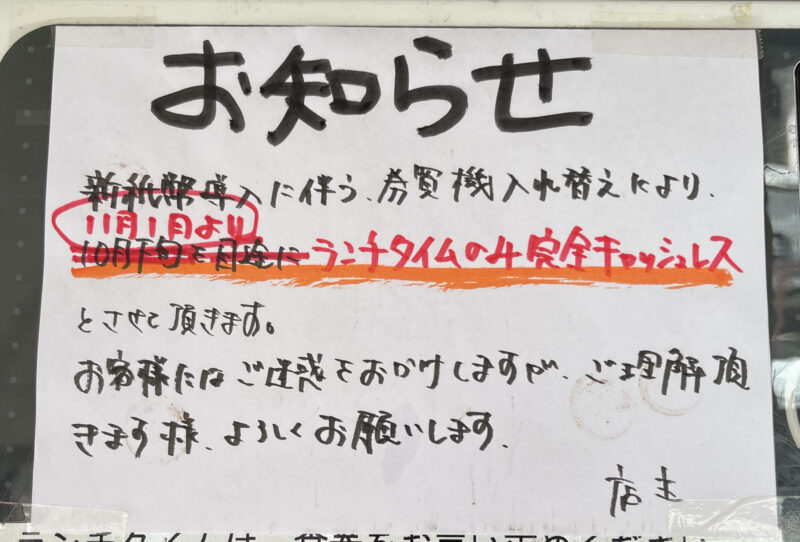 お知らせ
新紙幣導入に伴う、券買機入れ替えにより、
11月1月より
10月下旬を目途に ランチタイムのみ完全キャッシュレス
とさせて頂きます。
お客様にはご迷惑をおかけしますが、ご理解頂
きます様、よろしくお願いします。
店主
ランチタイムは、